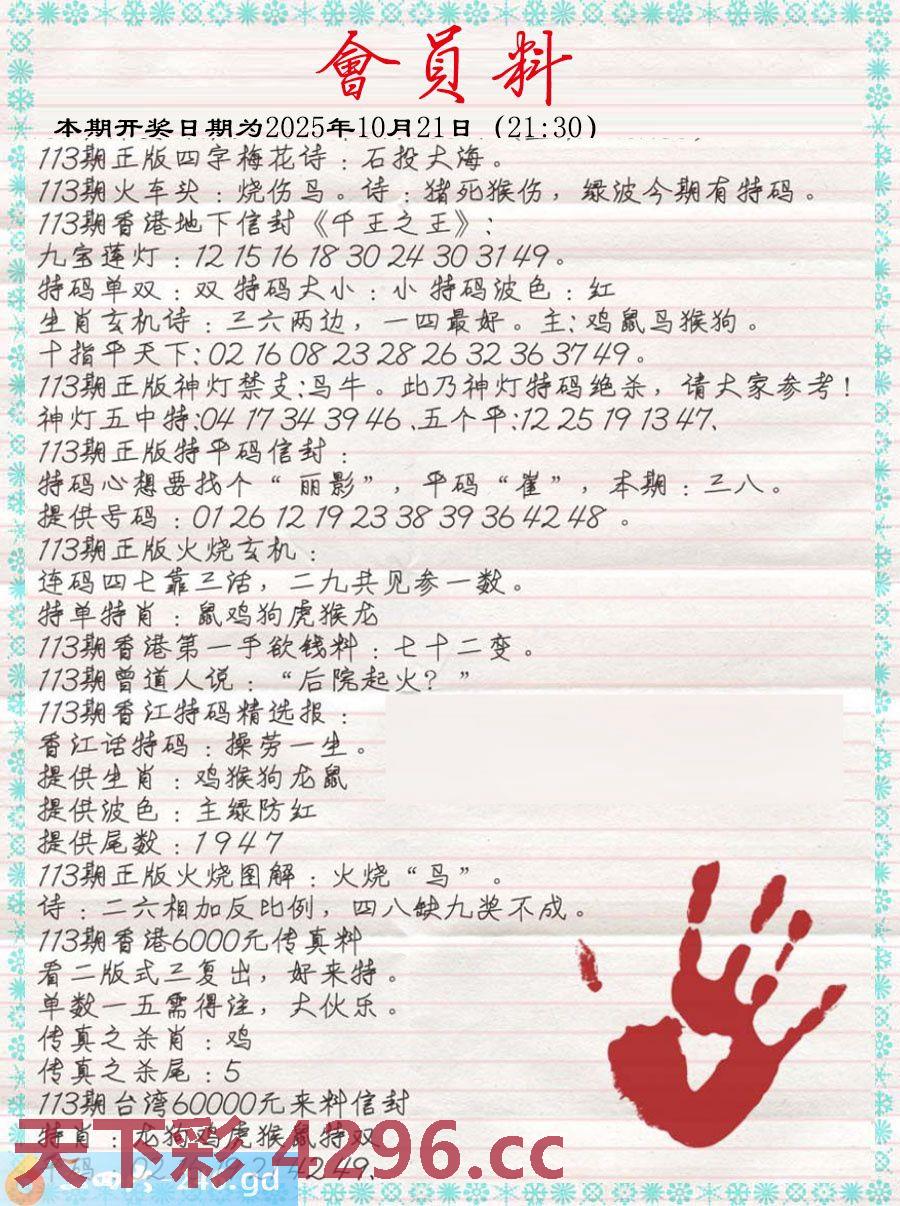 會員料
本期开奖日期为2025年10月21日（21:30）
113期正版四字梅花诗：石投大海。
113期火车头：烧伤鸟。诗：猪死猴伤，绿波今期有特码。
113期香港地下信封《千王之王》:
九宝莲灯：12 15 16 18 30 24 30 31 49。
特码单双：双 特码大小：小 特码波色：红
生肖玄机诗：三六两边，一四最好。主:鸡鼠鸟猴狗。
十指平天下:02 16 08 23 28 26 32 36 37 49。
113期正版神灯禁支:鸟牛。此乃神灯特码绝杀，请大家参考！
神灯五中特:04 17 34 39 46、五个平:12 25 19 13 47、
113期正版特平码信封：
特码心想要找个“丽影”，平码“崔”，本期：三八。
提供号码：01 26 12 19 23 38 39 36 42 48 。
113期正版火烧玄机：
连码四七靠三活，二九共见参一数。
特单特肖：鼠鸡狗虎猴龙
113期香港第一手欲钱料：七十二变。
113期曾道人说：“后院起火？”
113期香江特码精选报：
香江话特码：操劳一生。
提供生肖：鸡猴狗龙鼠
提供波色：主绿防红
提供尾数：1 9 4 7
113期正版火烧图解：火烧“鸟”。
诗：二六相加反比例，四八缺九奖不成。
113期香港6000元传真料
看二版式三复出，好来特。
单数一五需得注，大伙乐。
传真之杀肖：鸡
传真之杀尾：5
113期台湾60000元来料信封
特肖：龙狗鸡虎猴鼠特双
天下彩 4296.cc
42 49、
.gd